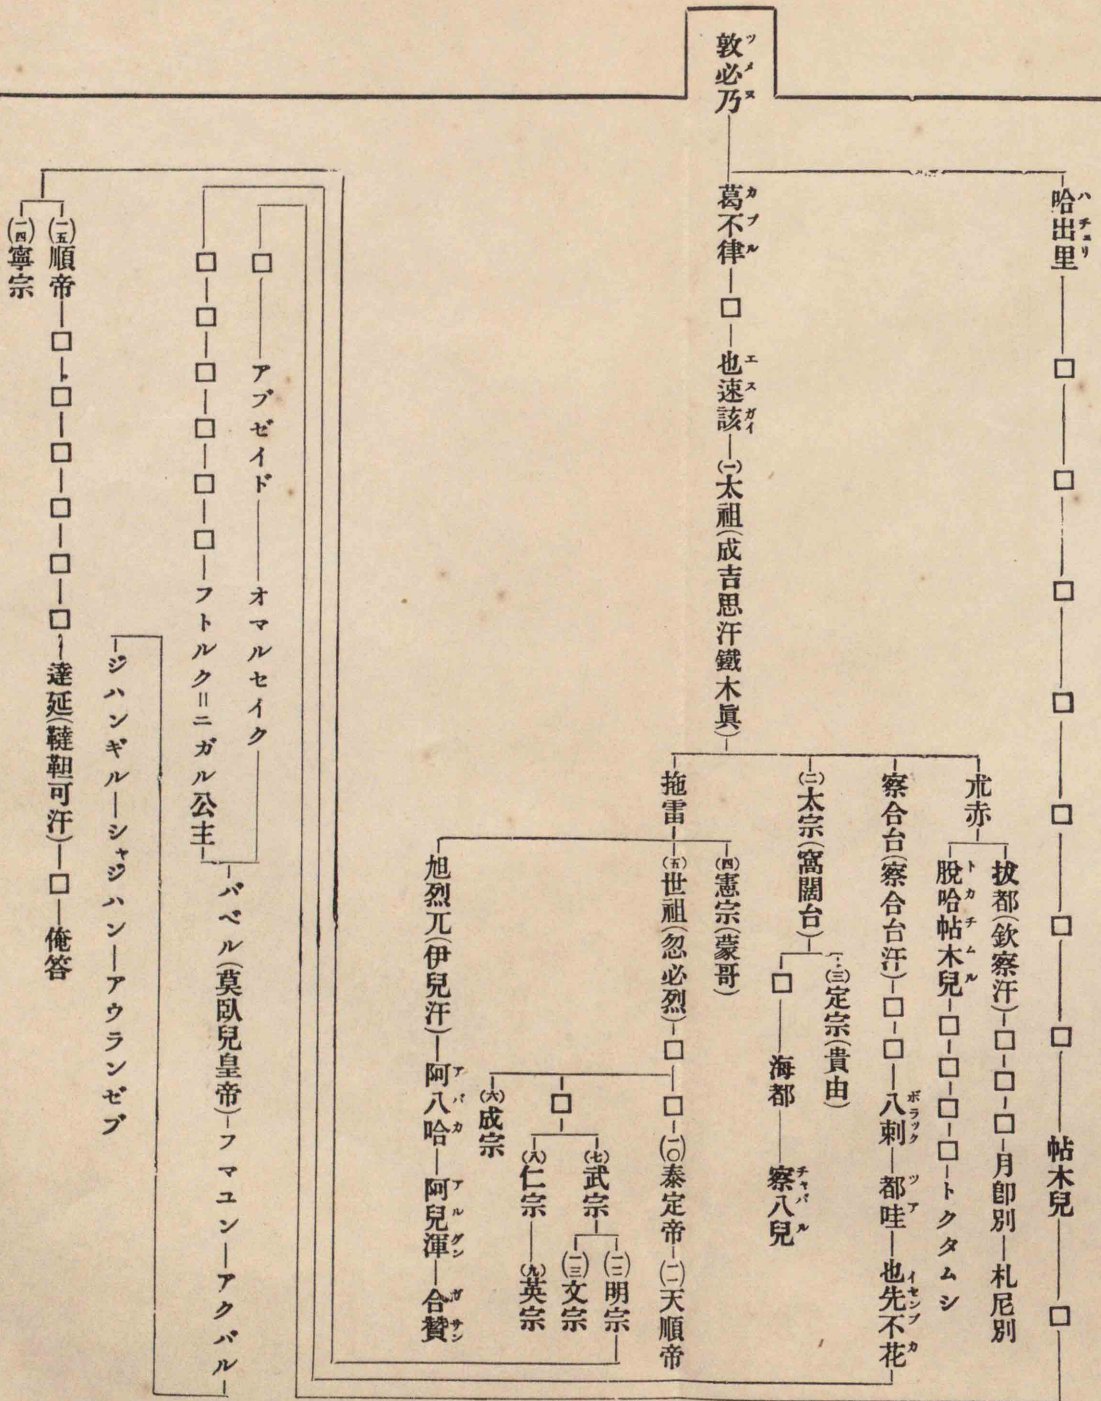 敦必乃 ツメヌ
哈出里 ハチユリ―□―□―□―□―□―□―□―帖木兒―□
葛不律 カブル―□―也速該 エスガイ―(一)太祖(成吉思汗鐵木眞)
朮赤
拔都(欽察汗)―□―□―□―月卽別―札尼別
脫哈帖木兒 トカチムル―□―□―□―□―トクタムシ
察合台(察合台汗)―□―□―八剌 ボラック―都哇 ツア―也先不花 イセンブカ
(二)太宗(窩闊台)
(三)定宗(貴由)
□―海都―察八兒 チャパル
拖雷
(四)憲宗(蒙哥)
(五)世祖(忽必烈)―□―□―(一〇)泰定帝―(一一)天順帝
□
(七)武宗
(一二)明宗
(一三)文宗
(八)仁宗―(九)英宗
(六)成宗
旭烈兀(伊兒汗)―阿八哈 アバカ―阿兒渾 アルグン―合贊 ガサン
□―アブゼイド―オマルセイク
□―□―□―□―□―□―フトルク=ニガル公主
バベル(莫臥兒皇帝)―フマユン―アクバル
ジハンギル―シャジハン―アウランゼブ
(一五)順帝―□―□―□―□―□―□―達延(韃靼可汗)―□―俺答
(一四)寧宗